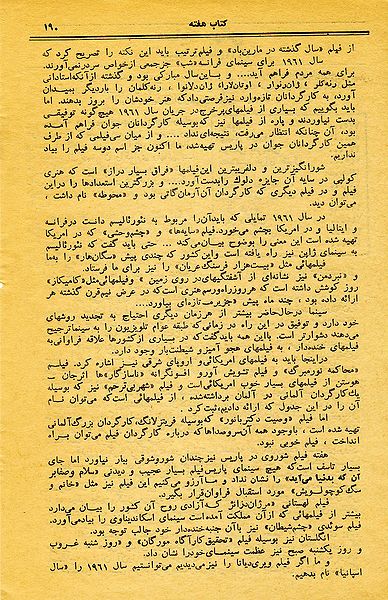 کتاب هفته
۱۹۰
از فیلم «سال گذشته در مارین‌باد» و فیلم ترتیب باید این نکته را تصریح کرد که
سال ۱۹۶۱ برای سینمای فرانسه «شب» جز جمعی از خواص سر در نمی‌آورند.
برای همه مردم فراهم آید.... و با این سال مبارکی بود و گذشته از آنکه استادانی
مثل رنه‌کلر، ژان‌رنوار، اوتان‌لارا، ژان‌دلانوا، رنه‌کلمان را باردیگر بمیدان
آورد، به کارگردانان تازه‌وارد نیز فرصتی داد که هنر خودشان را بروز بدهند. اما
باید بگوییم که بسیاری از فیلمهای پرخرج در جریان سال ۱۹۶۱ هیچگونه توفیقی
بدست نیاوردند و پاره از فیلمها نیز که بوسیله کارگردانان جوان فراهم آمده
بود، آن چنانکه انتظار میرفت، نتیجه‌ای نداد .... و از میان سی فیلمی که از طرف
همین کارگردانان جوان در پاریس تهیه‌شد، ما اکنون جز اسم دوسه فیلم را بیاد
نداریم.
شورانگیزترین و دلفریبترین این فیلمها «فراق بسیار دراز» است که هنری
کولپی در سایه آن جایزه دلوك را بدست آورد.... و بزرگترین استعدادها را در این
فیلم و در فیلم دیگری که کارگردان آن آرمان‌گاتی بود و «محوطه» نام داشت،
می‌توان دید.
در سال ۱۹۶۱ تمایلی که باید آن را مربوط به نئورئالیسم دانست در فرانسه
و ایتالیا و در امریکا بچشم می‌خورد. فیلم «سایه‌ها» و «چشم وحشی» که در امریکا
تهیه شده است این معنی را بوضوح بیان می‌کند ... حتی باید گفت که نئورئالیسم
به سینمای ژاپن نیز راه یافته است و این کشور که چندی پیش «سگان‌هار» را به ما
فیلمهائی مثل «بیست‌هزار فرسنگ عریان» را نیز برای ما فرستاد.
و «نبردمن» نیز نشانه‌ای از آشفتگیهای در روی زمین» و فیلمهائی مثل «کامیکاز»
روز کوشش داشته است که هر روز را مورد هنری است که در عرض نیم قرن گذشته هر
ارائه داده بود، چند ماه پیش «جزیره» تازه‌ای بیاورد....
سینما در حال حاضر بیشتر از هر زمان دیگری احتیاج به تجدید روشهای
خود دارد و توفیق در این راه در زمانی که طبقه عوام تلویزیون را به سینما ترجیح
می‌دهند دشوارتر است. با این همه باید گفت که در بسیاری از کشورها علاقه فراوانی به
فیلمهای خنده‌دار، به فیلمهای هجو آمیز و شیطنت‌بار وجود دارد.
در اینجا باید به فیلمهای امریکائی و اروپای شرقی نیز اشاره کرد. فیلم
«محاکمه نورمبرگ» و فیلم تشویش آور و افسونگرانه «ناسازگارها» اثر جان
هوستن از فیلمهای بسیار خوب امریکائی است و فیلم «شهر بی‌ترحم» نیز که بوسیله
یك کارگردان آلمانی در آلمان برداشته شده، از فیلمهائی است که می‌توان نام
آن را در این جدول که ارائه دادیم، ثبت کرد.
اما فیلم «وصیت دکتر مابوز» که بوسیله فریتز لانگ، کارگردان بزرگ آلمانی
تهیه شده است، با وجود همه آن سر و صداها که درباره کارگردان فیلم می‌توان براه
انداخت، فیلم خوبی نبود.
هفته فیلم شوروی در پاریس نیز چندان شور و شوقی ببار نیاورد اما جای
بسیار تاسف است که هیچ سینمای پاریس فیلم بسیار عجیب و دیدنی «سلام و صفا بر
آن که بدنیا می‌آید» را نشان نداد و ما آرزو می‌کنیم این فیلم نیز مثل «خانم و
سگ کوچولویش» مورد استقبال فراوان قرار بگیرد.
فیلم لهستانی «مرزان ژانژ» که آزادی روح آن کشور را بیان می‌دارد
بیشتر از فیلمهائی که از آن مملکت آمده است سینمای اسکاندیناوی را بیاد می‌آورد.
فیلم سوئدی «چشم شیطان» نیز با آن جنبه خنده‌دار خود جالب توجه بود.
انگلستان نیز بوسیله فیلم «تحقیق کارآگاه مورگان» و «روز شنبه غروب
و روز یکشنبه صبح نیز عظمت سینمای خود را نشان داد.
و ما اگر فیلم ویریدیانا را نیز می‌دیدیم می‌توانستیم سال ۱۹۶۱ را «سال
اسپانیا» نام بدهیم.